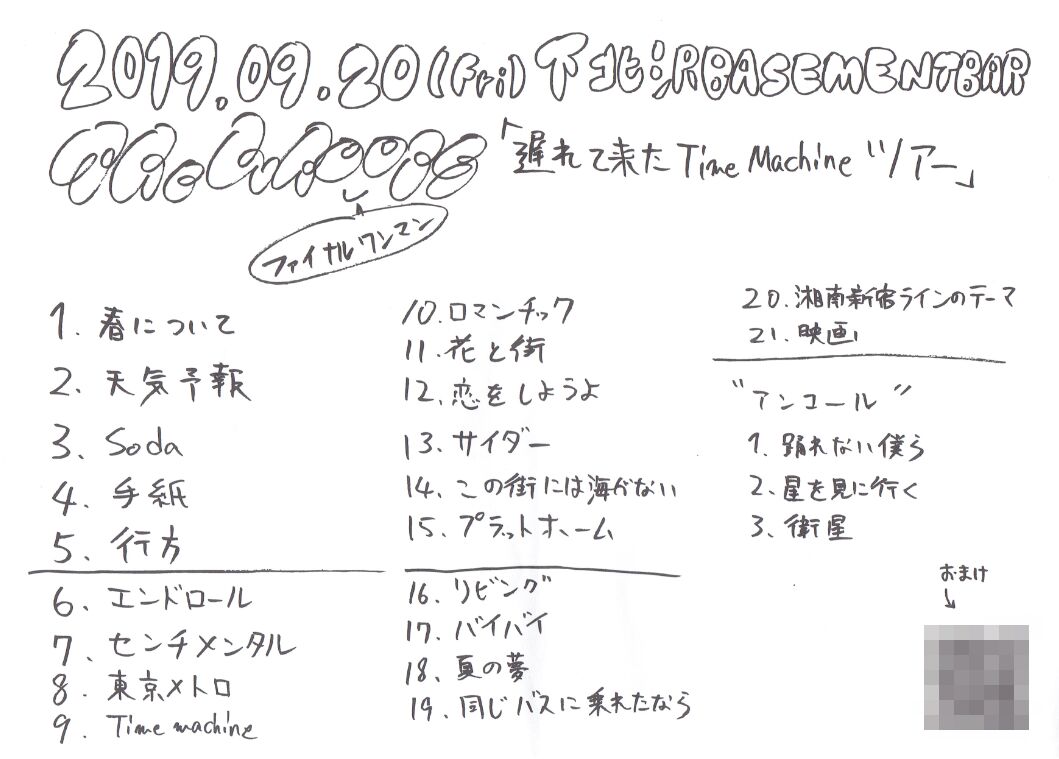 2019.09.20(Fri) 下北沢BASEMENTBAR
the whoops 「遅れて来たTime Machine ツアー」
ファイナルワンマン
1. 春について
2. 天気予報
3. Soda
4. 手紙
5. 行方
6. エンドロール
7. センチメンタル
8. 東京メトロ
9. Time machine
10. ロマンチック
11. 花と街
12. 恋をしようよ
13. サイダー
14. この街には海がない
15. プラットホーム
16. リビング
17. バイバイ
18. 夏の夢
19. 同じバスに乗れたなら
20. 湘南新宿ラインのテーマ
21. 映画
"アンコール"
1. 踊れない僕ら
2. 星を見に行く
3. 衛星
おまけ